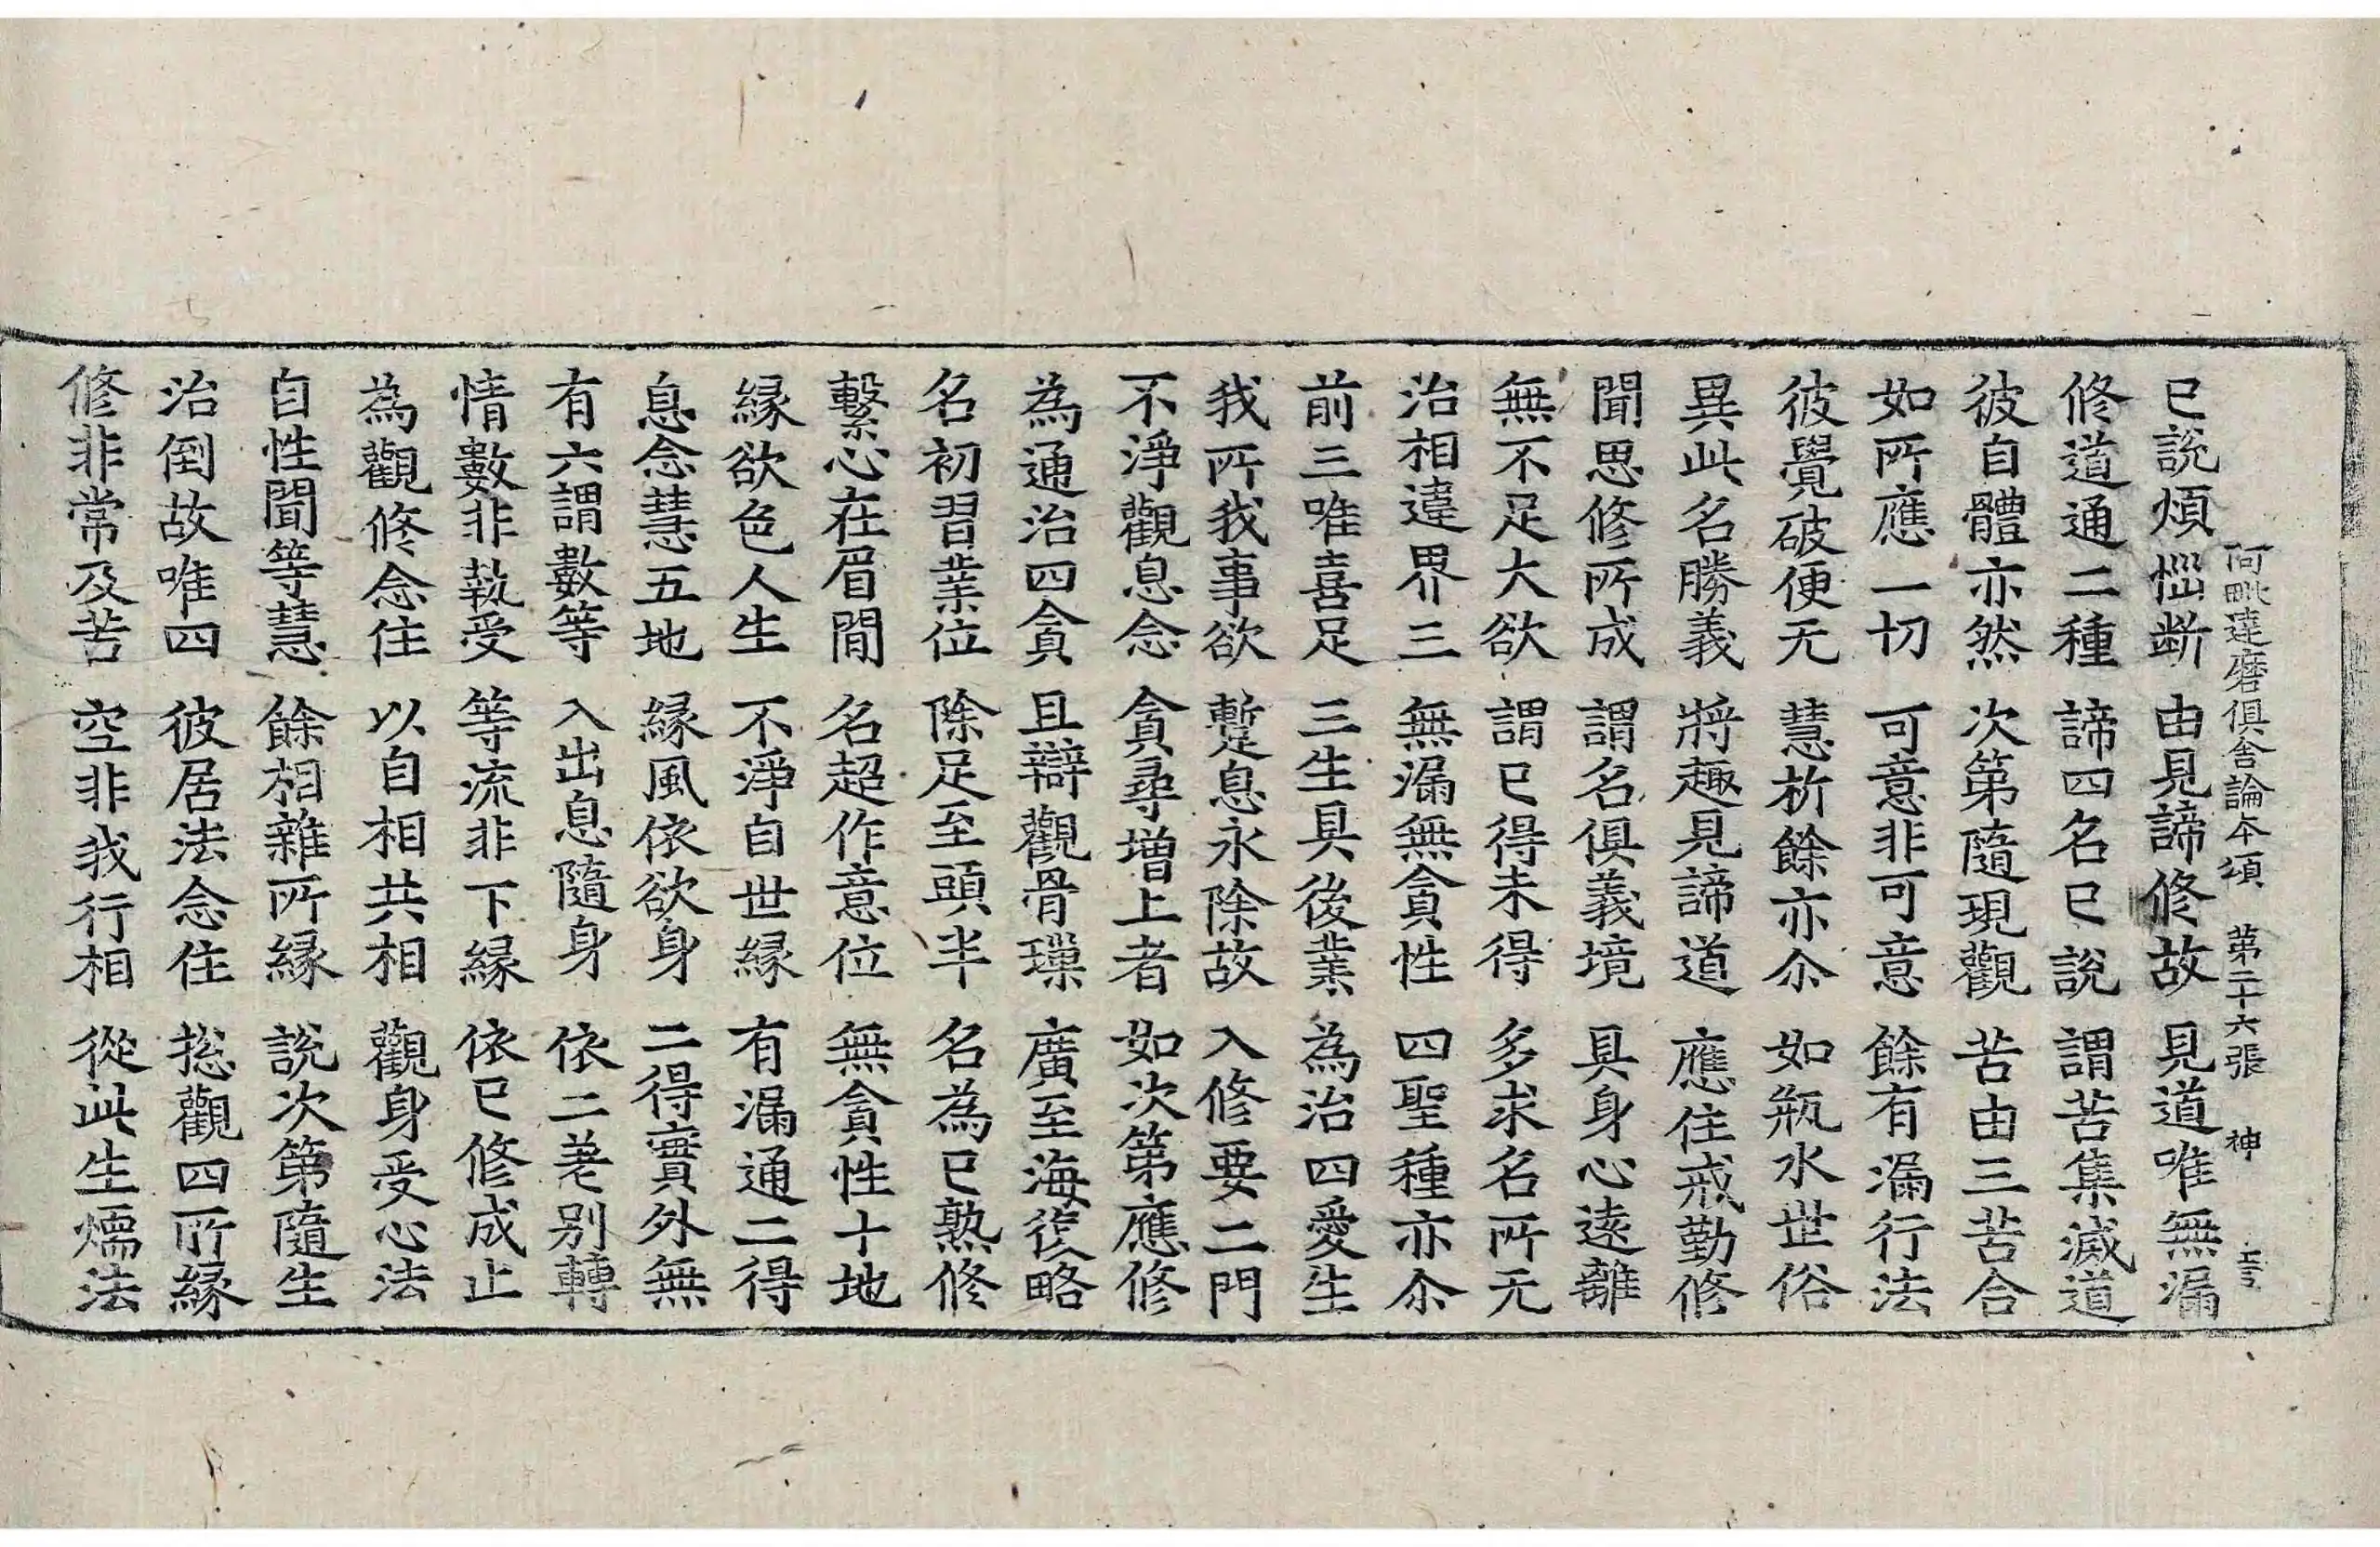 阿毗達磨俱舍論本頌 第二十六張 神
已說煩惱断 由見諦修故 見道唯無漏
修道通二種 諦四名已說 謂苦集滅道
彼自體亦然 次第隨現觀 苦由三苦合
如所應一切 可意非可意 餘有漏行法
彼覺破便无 慧析餘亦尒 如瓶水世俗
異此名勝義 將趣見諦道 應住戒勤修
聞思修所成 謂名俱義境 具身心遠離
無不足大欲 謂已得未得 多求名所无
治相違界三 無漏無貪性 四聖種亦尒
前三唯喜足 三生具後業 為治四愛生
我所我事欲 蹔息永除故 入修要二門
不淨觀息念 貪尋增上者 如次第應修
為通治四貪 且辯觀骨璅 廣至海復略
名初習業位 除足至頭半 名為已熟修
繫心在眉閒 名超作意位 無貪性十地
緣欲色人生 不淨自世緣 有漏通二得
息念慧五地 緣風依欲身 二得實外無
有六謂數等 入出息隨身 依二差别轉
情數非執受 等流非下緣 依已修成止
為觀修念住 以自相共相 觀身受心法
自性聞等慧 餘相雜所緣 說次第隨生
治倒故唯四 彼居法念住 揔觀四所緣
修非常及苦 空非我行相 從此生煗法